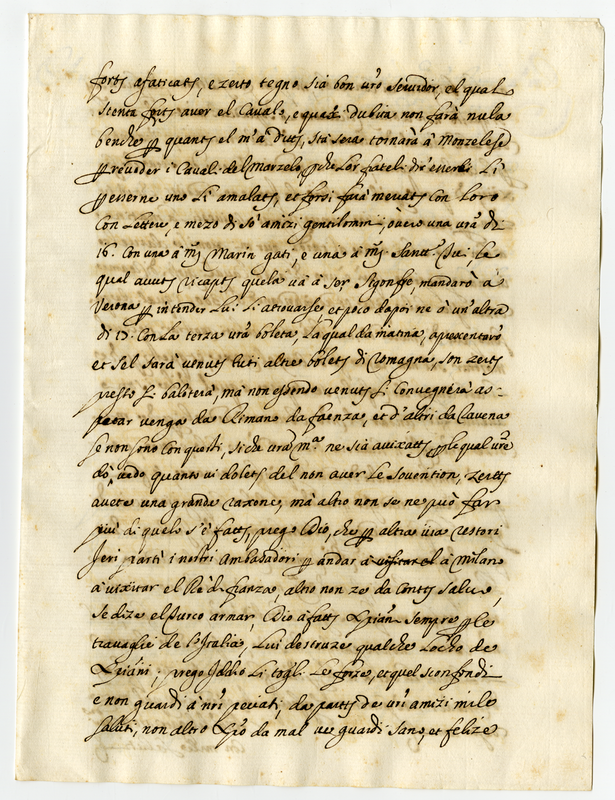 forts afaticatts, e zerto tegno sia bon vro servidor, el qual
stenta forts aver el Caval, e quaxi dubita non farà nula
benche p quants el m'à ditts, sta sera tornarà à Monzelese
p reveder i Caval del Marzelo, pche Lor fratel
p esserne uno Li amalats, et forsi farà mevats con Loro
Con Lettere, e mezo di sò amizi gentilomin, ò vero una vra di
16. Con una à mj Marin gati, e una à mj Sant La
qual avuts ricapts quela và à Sor mandarò à
Verona p intender Lui Li atrovarse et poco dapoi ne ò un' altra
di 17. Con La terza vra boleta, La qual da matina, apexentarò
et Sel sarà venuts tuti altri bolets di Romagna, son zerts
presto si baloterà, mà non essendo venuts si Convegnerà as-
petar venga da Rimano da faenza, et d'altri da Ravena
se non sono Con questi, siche vra mª ne sia avixatts p le qual vre
dò, vedo quants vi dolets del non aver Le Sovention, zertts
avete una grande raxone, mà altro non se ne può far
più di quelo s'è fatts, prego Idio, che p altra via restori
Jeri partì i nostri Ambasadori p andar à visitar el à Milan
à vixitar el Rè di franza, altro non ze da Conts salvo,
se dize el Turco armar, Idio à fatts Xpiãn sempre p le
travaglie de l'Italia, Lui destruze qualche Locho de
Xpiãni, prego Iddio Li togli Le forze, et quel sconfondi
e non guardi à nri peciati, da parts de vri amizi mile
saluti, non altro Xpo da mal ve guardi sano, et felize